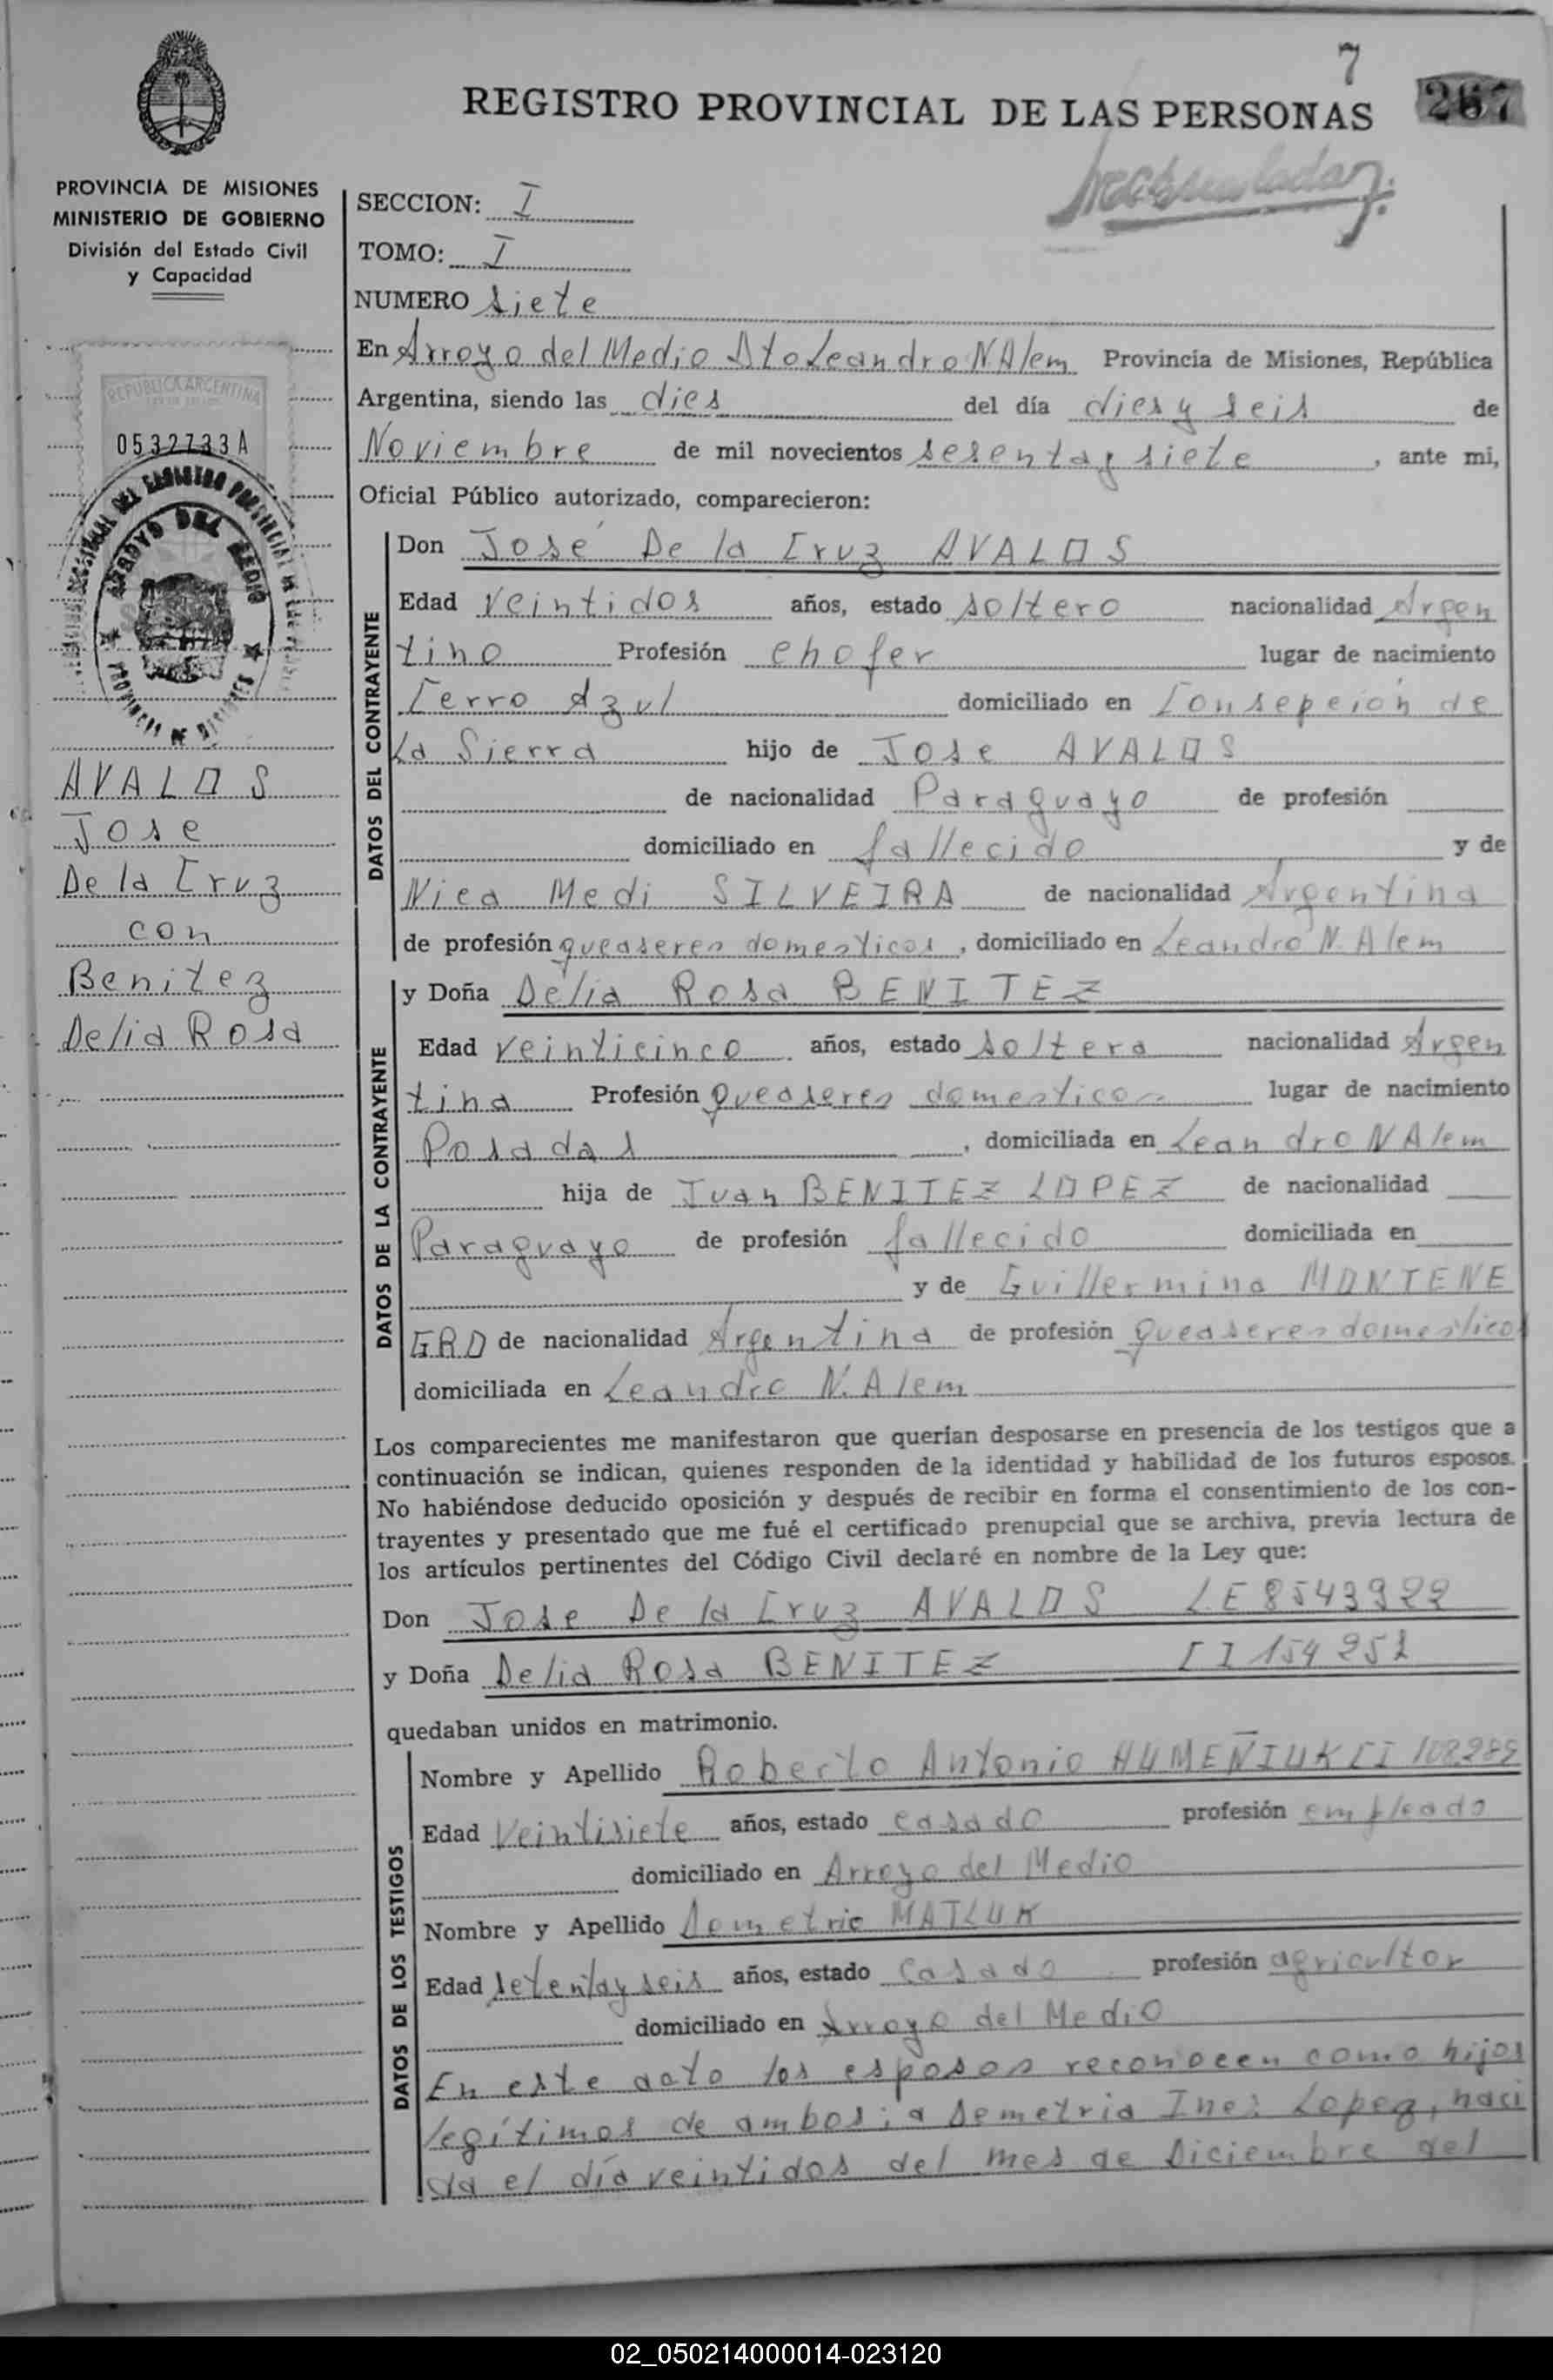 7
REGISTRO PROVINCIAL DE LAS PERSONAS 267
PROVINCIA DE MISIONES
MINISTERIO DE GOBIERNO
División del Estado Civil
y Capacidad
REPUBLICA ARGENTINA
0532733A
ARROYO DEL MEDIO
PROVINCIA DE MISIONES
AVALOS
Jose
De la Cruz
con
Benitez
Delia Rosa
SECCION: I
TOMO: I
NUMERO siete
En Arroyo del Medio Dto Leandro N Alem Provincia de Misiones, República
Argentina, siendo las dies del día dies y seis de
Noviembre de mil novecientos sesenta y siete, ante mi,
Oficial Público autorizado, comparecieron:
DATOS DEL CONTRAYENTE
Don José De la Cruz AVALOS
Edad veintidos años, estado soltero nacionalidad Argen
tino Profesión chofer lugar de nacimiento
Cerro Azul domiciliado en Consepción de
La Sierra hijo de Jose AVALOS
de nacionalidad Paraguayo de profesión
domiciliado en fallecido y de
Nica Medi SILVEIRA de nacionalidad Argentina
de profesión queaseres domesticos, domiciliado en Leandro N. Alem
DATOS DE LA CONTRAYENTE
y Doña Delia Rosa BENITEZ
Edad veinticinco años, estado soltera nacionalidad Argen
tina Profesión queaseres domesticos lugar de nacimiento
Posadas, domiciliada en Leandro N Alem
hija de Juan BENITEZ LOPEZ de nacionalidad
Paraguayo de profesión fallecido domiciliada en
y de Guillermina MONTENE
GRO de nacionalidad Argentina de profesión queaseres domesticos
domiciliada en Leandro N. Alem
Los comparecientes me manifestaron que querían desposarse en presencia de los testigos que a
continuación se indican, quienes responden de la identidad y habilidad de los futuros esposos.
No habiéndose deducido oposición y después de recibir en forma el consentimiento de los con-
trayentes y presentado que me fué el certificado prenupcial que se archiva, previa lectura de
los artículos pertinentes del Código Civil declaré en nombre de la Ley que:
Don Jose De la Cruz AVALOS LE 8543922
y Doña Delia Rosa BENITEZ CI 154251
quedaban unidos en matrimonio.
DATOS DE LOS TESTIGOS
Nombre y Apellido Roberto Antonio HUMEÑIUK CI
Edad veintisiete años, estado casado profesión empleado
domiciliado en Arroyo del Medio
Nombre y Apellido Dometrio MATLUK
Edad setenta y seis años, estado casado profesión agricultor
domiciliado en Arroyo del Medio
En este acto los esposos reconocen como hijos
legítimos de ambos: a Demetria Ines Lopez, naci
da el día veintidos del mes de Diciembre del
02_050214000014-023120